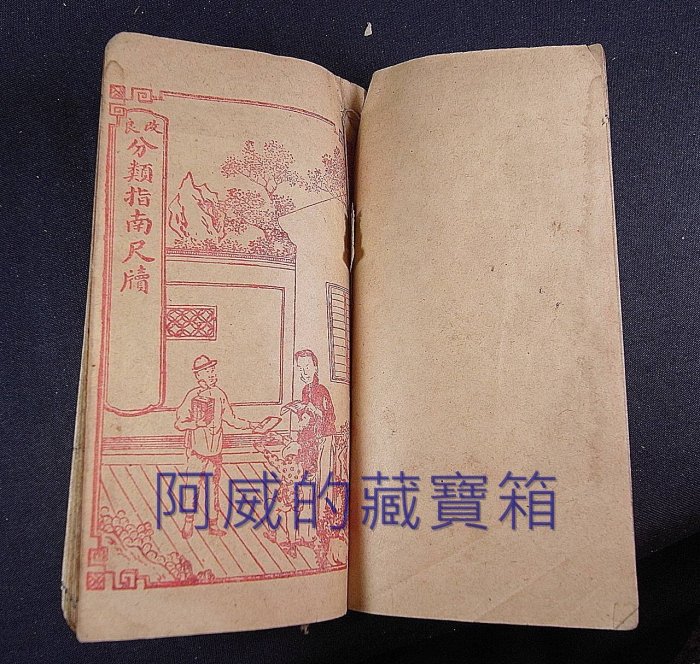 改良
分類指南尺牘
阿威的藏寶箱